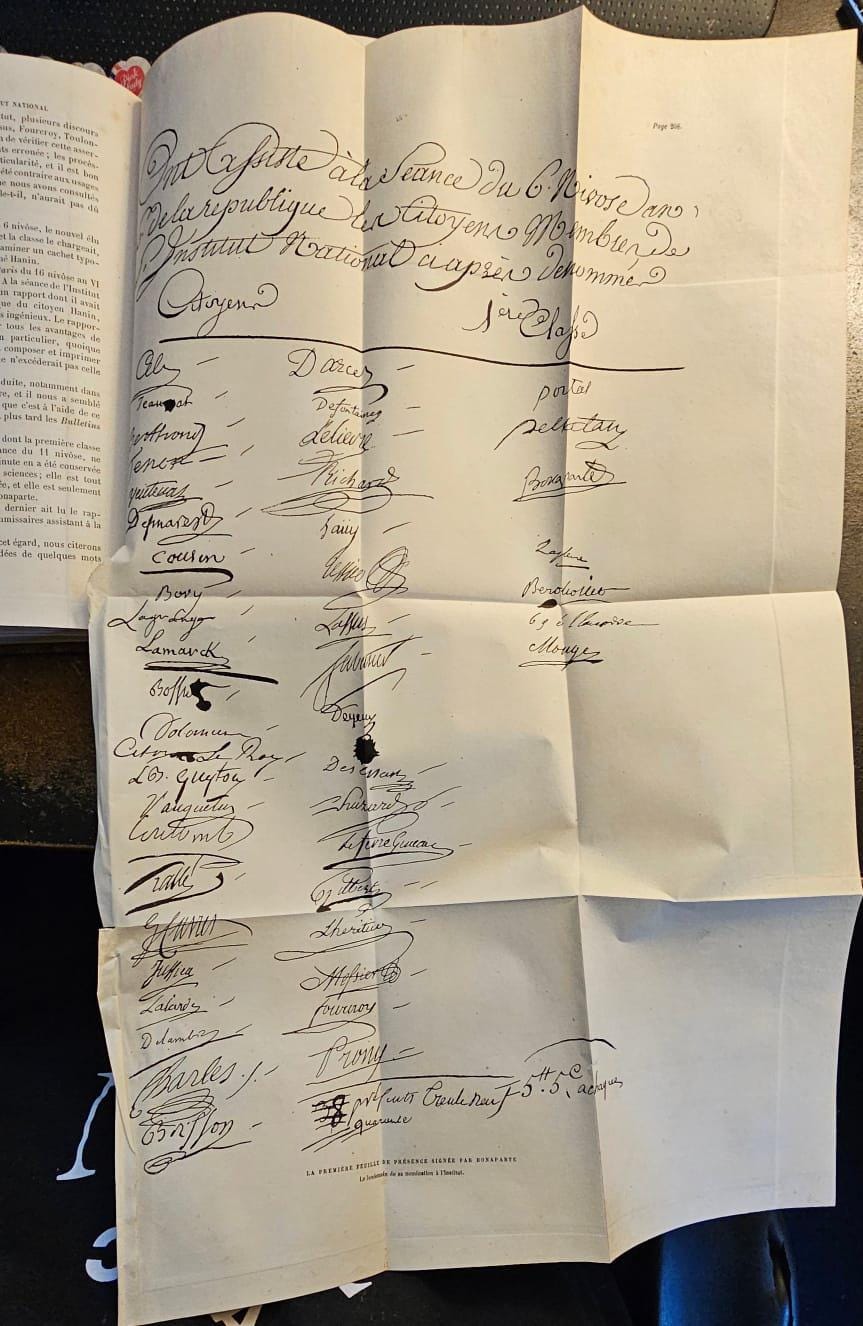 UT NATIONAL
tut, plusieurs discours
sus, Fourcroy, Toulon-
n de vérifier cette asser-
ts erronée; les procès-
ticularité, et il est bon
été contraire aux usages
ue nous avons consultés
le-t-il, n'aurait pas dû
6 nivôse, le nouvel élu
et la classe le chargeait,
aminer un cachet typo-
né Hanin.
aris du 16 nivôse an VI
A la séance de l'Institut
un rapport dont il avait
que du citoyen Hanin,
s ingénieux. Le rappor-
tous les avantages de
n particulier, quoique
composer et imprimer
e n'excéderait pas celle
duite, notamment dans
re, et il nous a semblé
que c'est à l'aide de ce
plus tard les Bulletins
dont la première classe
ance du 11 nivôse, ne
inute en a été conservée
sciences; elle est tout
ée, et elle est seulement
onaparte.
dernier ait lu le rap-
mmissaires assistant à la
cet égard, nous citerons
dées de quelques mots
Page 206.
Ont assisté à la Séance du 6. Nivose an
de la republique les Citoyens Membres de
l'Institut National ci après denommés
Citoyens
1ère Classe
Cels
Jeaurat
Berthoud
Tenon
Desmarest
Cousin
Bory
Lagrange
Lamarck
Bossut
Dolomieu
Citoyen Le Roy
L.B. Guyton
Vauquelin
Coulomb
Hallé
G Cuvier
Jussieu
Lalande
Delambre
Charles
Brisson
Darcet
Desfontaines
Lelievre
Richard
haüy
Tessier
Lassus
Sabatier
Deyeux
Desessartz
huzard
Lefevre Gineau
Gilbert
Lheritier
Messier
fourcroy
Prony
portal
pelletan
Bonaparte
Laplace
Berthollet
Monge
38 présents Trente neuf 5tt 5c à chaque
quarante
LA PREMIÈRE FEUILLE DE PRÉSENCE SIGNÉE PAR BONAPARTE
Le lendemain de sa nomination à l'Institut.